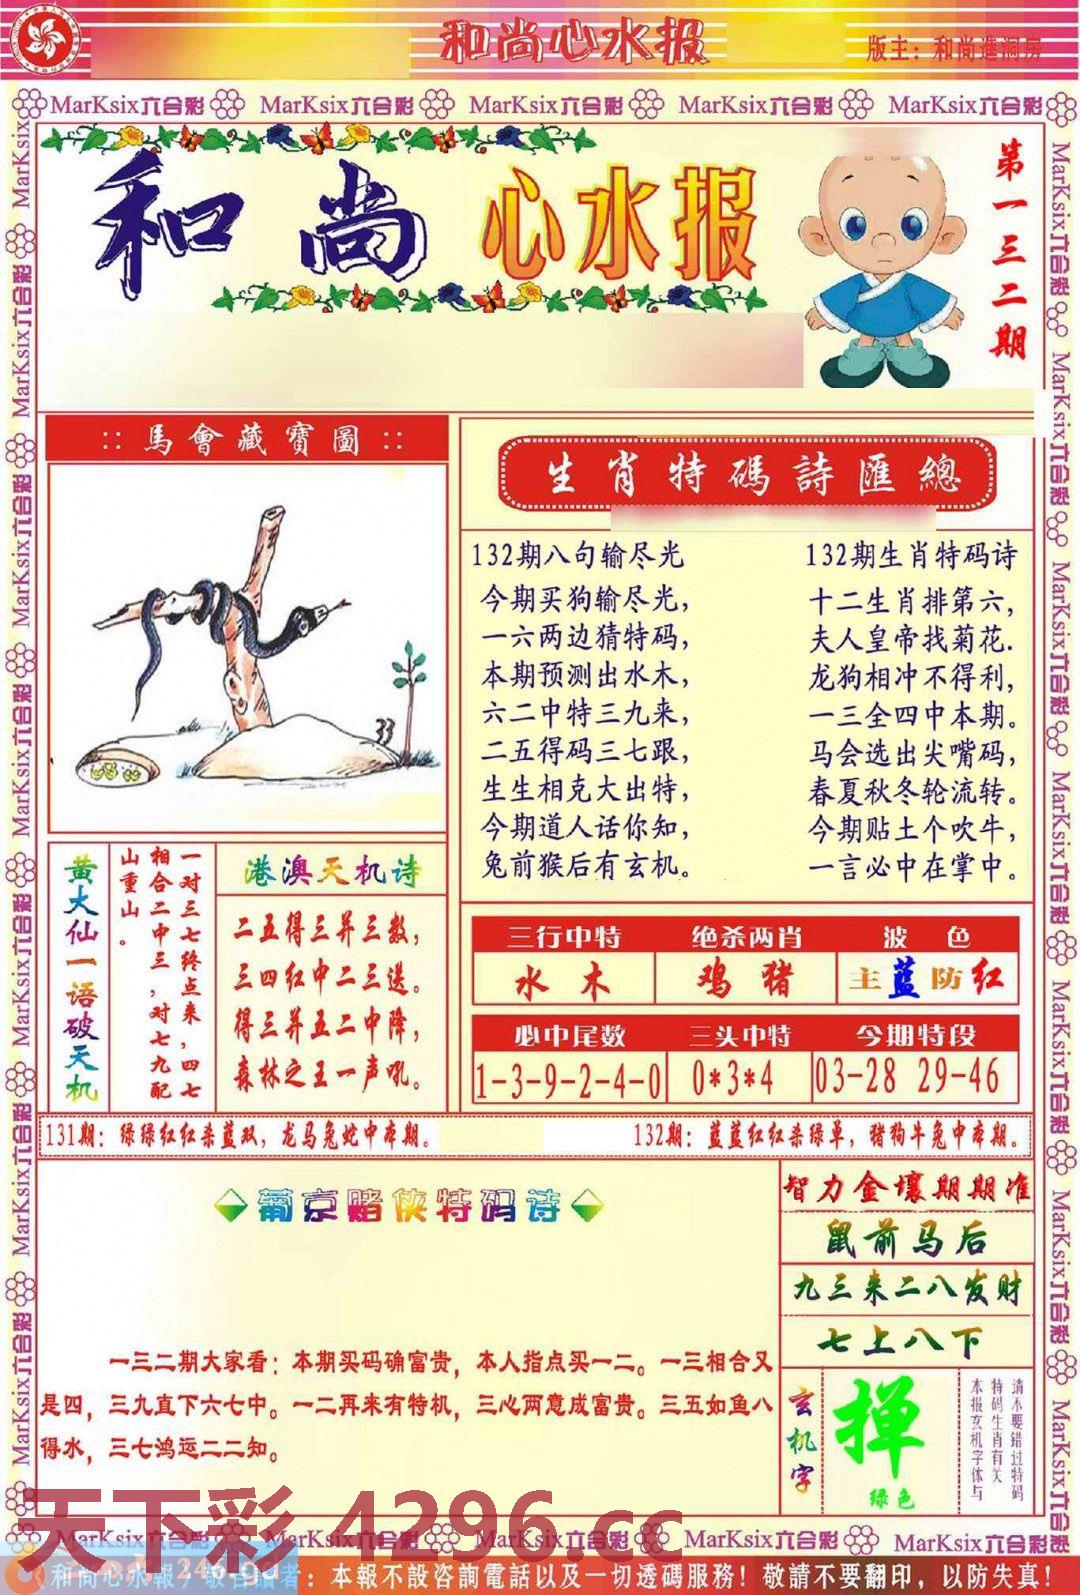 和尚心水报
版主：和尚進洞房
MarKsix六合彩 MarKsix六合彩 MarKsix六合彩 MarKsix六合彩 MarKsix六合彩
和尚心水报
第一三二期
::馬會藏寶圖::
33
生肖特碼詩匯總
132期八句输尽光
今期买狗输尽光，
一六两边猜特码，
本期预测出水木，
六二中特三九来，
二五得码三七跟，
生生相克大出特，
今期道人话你知，
兔前猴后有玄机。
132期生肖特码诗
十二生肖排第六，
夫人皇帝找菊花.
龙狗相冲不得利，
一三全四中本期。
马会选出尖嘴码，
春夏秋冬轮流转。
今期贴士个吹牛，
一言必中在掌中。
黄大仙一语破天机
一对三七终点来，四七
相合二中三，对七九配
山重山。
港澳天机诗
二五得三并三数，
三四红中二三送。
得三并五二中降，
森林之王一声吼。
三行中特 绝杀两肖 波色
水木 鸡猪 主蓝防红
必中尾数 三头中特 今期特段
1-3-9-2-4-0 0*3*4 03-28 29-46
131期：绿绿红红杀蓝双，龙马兔蛇中本期。
132期：蓝蓝红红杀绿单，猪狗牛兔中本期。
葡京赌侠特码诗
一三二期大家看：本期买码确富贵，本人指点买一二。一三相合又
是四，三九直下六七中。一二再来有特机，三心两意成富贵。三五如鱼八
得水，三七鸿运二二知。
智力金壤期期准
鼠前马后
九三来二八发财
七上八下
玄机字
掸
绿色
请不要错过特码
特码生肖有关
本报玄机字体与
天下彩 4296.cc
MarKsix六合彩 MarKsix六合彩 MarKsix六合彩 MarKsix六合彩 MarKsix六合彩
和尚心水報，敬告讀者：本報不設咨詢電話以及一切透碼服務！敬請不要翻印，以防失真！